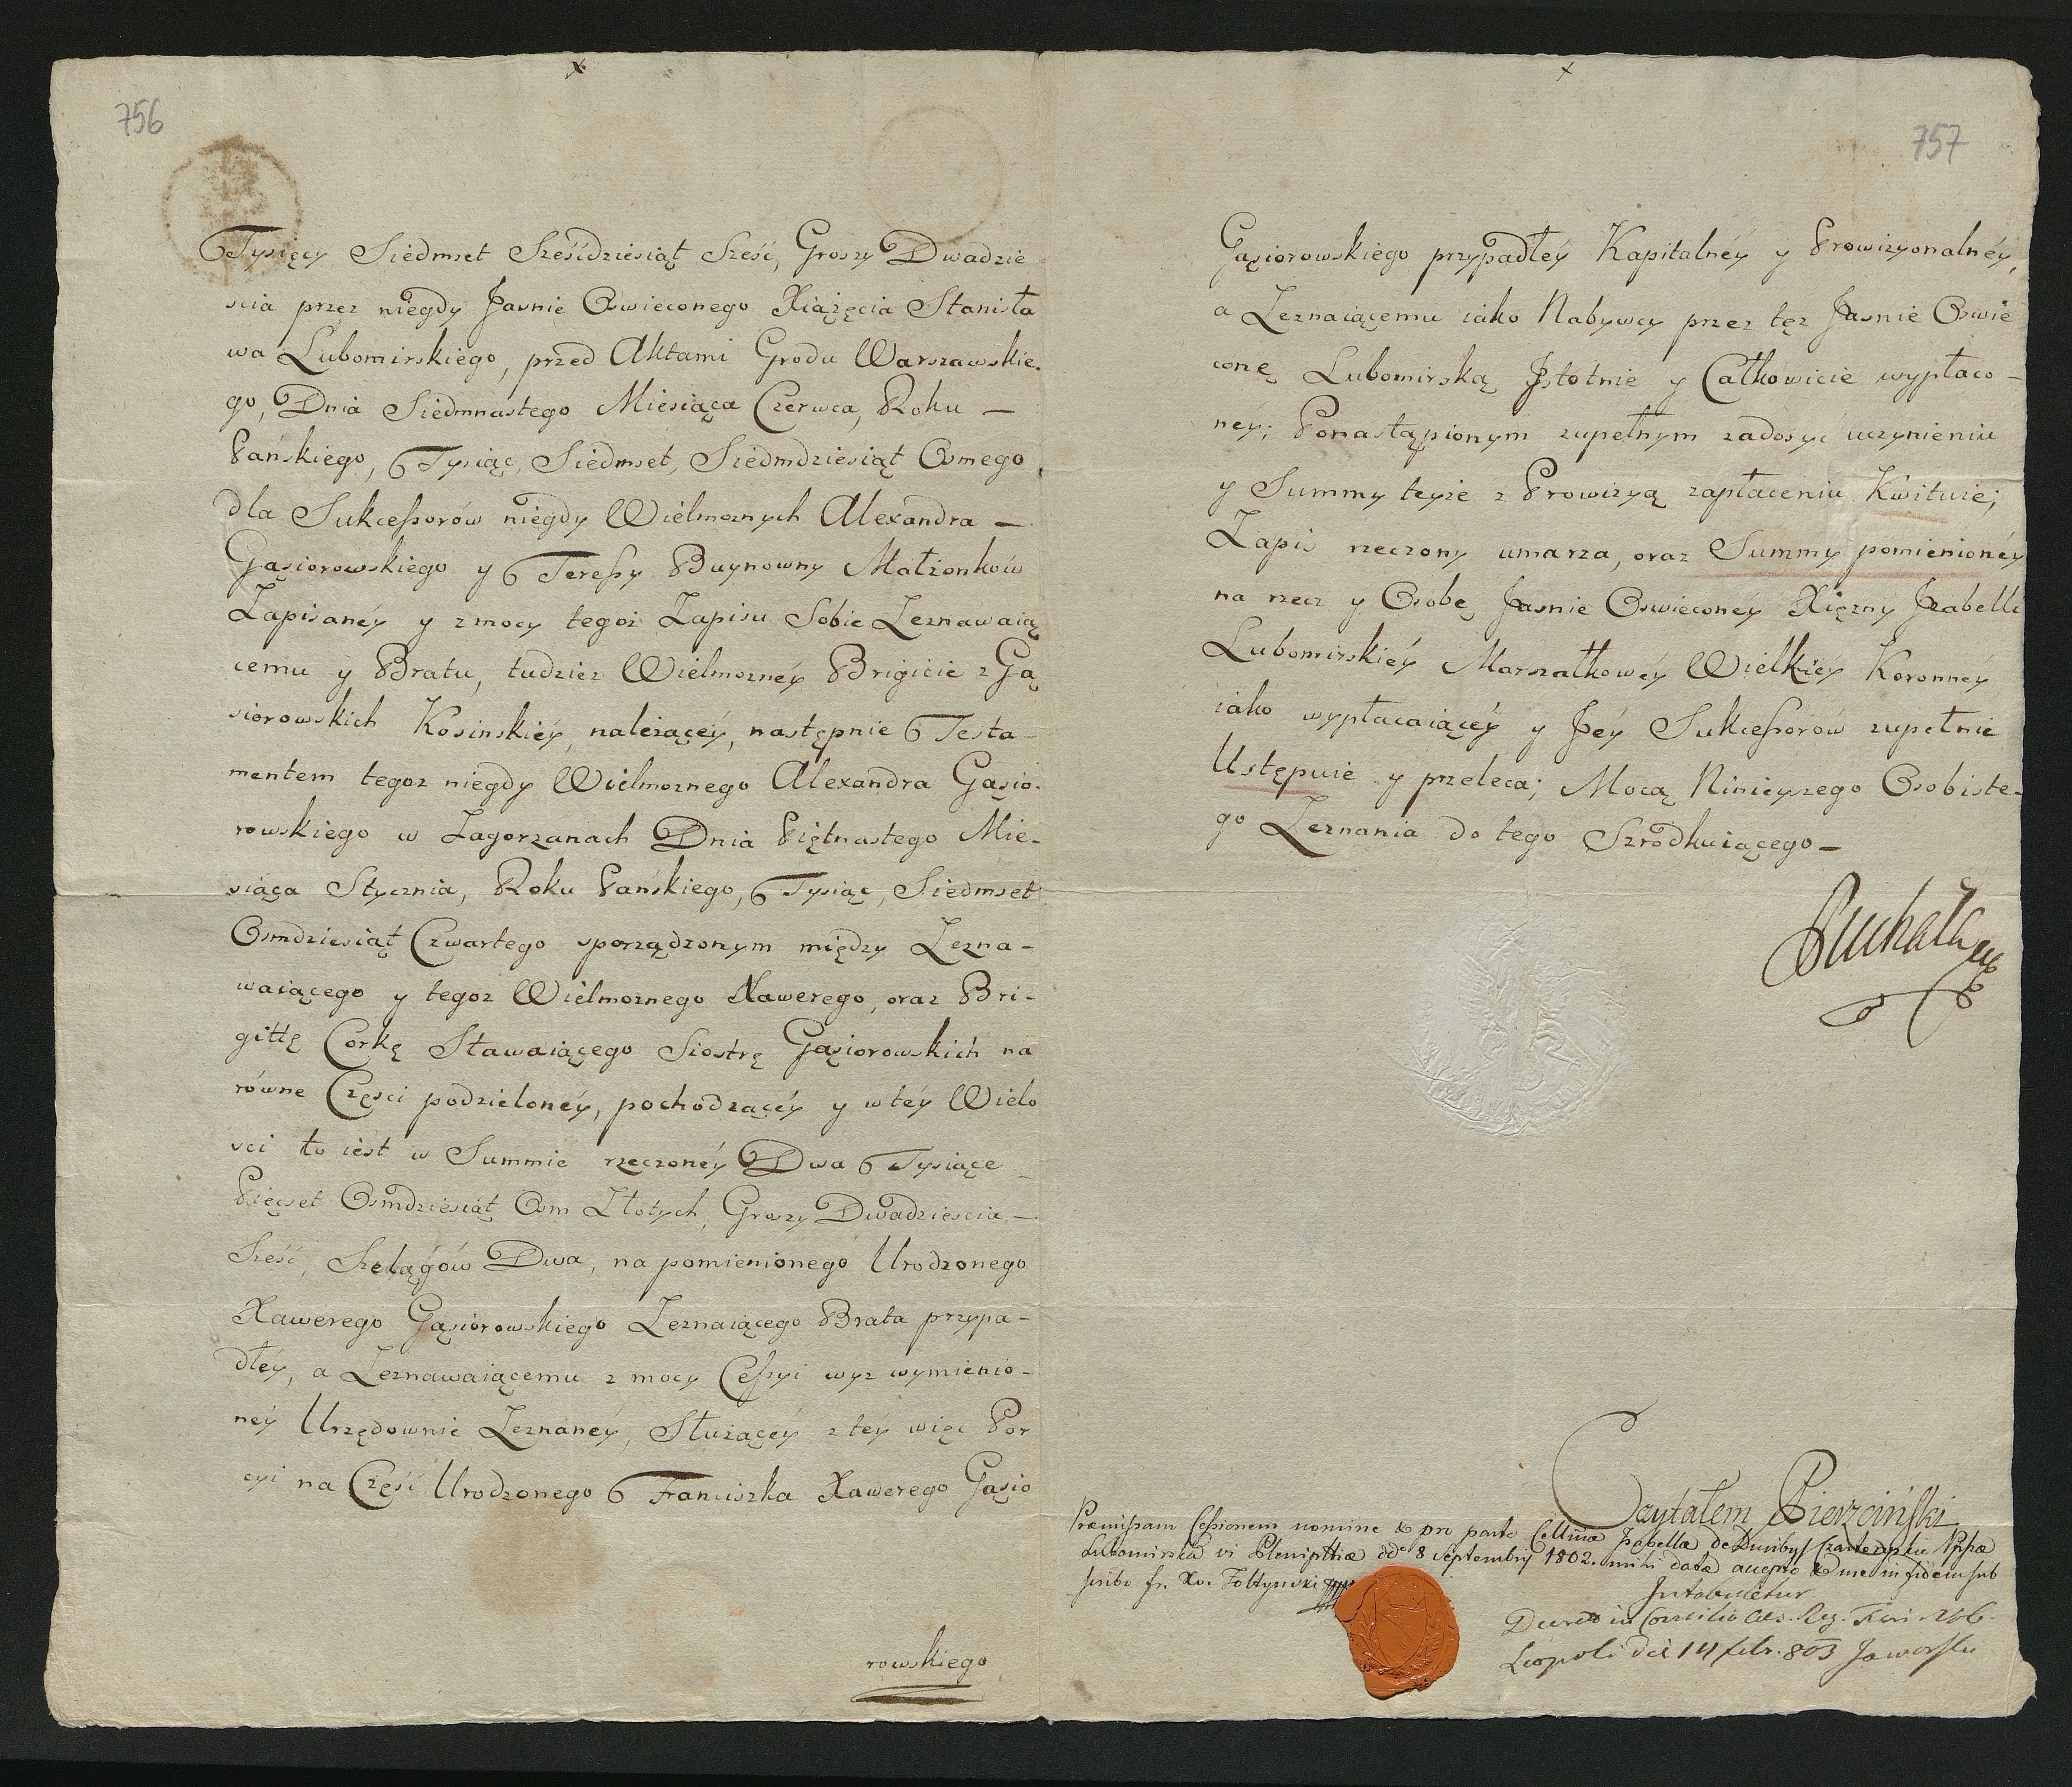 756
Tysięcy Siedmset Sześćdziesiąt Sześć, Groszy Dwadzie
scia przez niegdy Jasnie Oswieconego Xiążęcia Stanisła
wa Lubomirskiego, przed Aktami Grodu Warszawskie-
go, Dnia Siedmnastego Miesiąca Czerwca, Roku —
Pańskiego, Tysiąc, Siedmset, Siedmdziesiąt Osmego,
dla Sukceßorów niegdy Wielmoznych Alexandra —
Gąsiorowskiego y Tereßy Buynowny Małzonków
Zapisanéy y z mocy tegoż Zapisu Sobie Zeznawaią
cemu y Bratu, tudziez Wielmoznéy Brigicie z Gą
siorowskich Kosinskiéy, nalezącéy, następnie Testa-
mentem tegoz niegdy Wielmoznego Alexandra Gąsio-
rowskiego w Zagorzanach Dnia Piętnastego Mie-
siąca Stycznia, Roku Pańskiego, Tysiąc, Siedmset
Osmdziesiąt Czwartego sporządzonym między Zezna-
waiącego y tegoz Wielmoznego Xawerego, oraz Bri-
gittę Corkę Stawaiącego Siostrę Gąsiorowskich na
równe Częsci podzielonéy, pochodzącéy y w téy Wielo
sci to iest w Summie rzeczonéy Dwa Tysiące —
Pięćset Osmdziesiąt Osm Złotych, Groszy Dwadziescia —
Sześć, Szelągów Dwa, na pomienionego Urodzonego
Xawerego Gąsiorowskiego Zeznaiącego Brata przypa-
dłéy, a Zeznawaiącemu z mocy Ceßyi wyz wymienio-
néy Urzędownie Zeznanéy, Służącéy z téy więc Por
cyi na Część Urodzonego Franciszka Xawerego Gąsio
rowskiego
757
Gąsiorowskiego przypadłéy Kapitalnéy y Prowizyonalnéy,
a Zeznaiącemu iako Nabywcy przez tęz Jasnie Oswie
conę Lubomirską Jstotnie y Całkowicie wypłaco-
néy; Ponastąpionym zupełnym zadosyć uczynieniu
y Summy teyże z Prowizyą zapłaceniu Kwituie;
Zapis rzeczony umarza, oraz Summy pomienionéy
na rzecz y Osobę Jasnie Oswieconéy Xięzny Jzabelli
Lubomirskiéy Marszałkowéy Wielkiéy Koronnéy
iako wypłacaiącéy y Jéy Sukceßorów zupełnie
Ustępuie y przeleca; Mocą Ninieyszego Osobiste-
go Zeznania do tego Szrodkuiącego —
Czytałem Pierzciński
Præmißam Ceßionem nomine & pro parte Isabellæ de Czartoryskie
Lubomirska vi dd° 8 Septembris 1802. mihi datæ accepto me in fidem sub
scribo fr. Xv.
Intabuletur
Leopoli 14 febr. 803